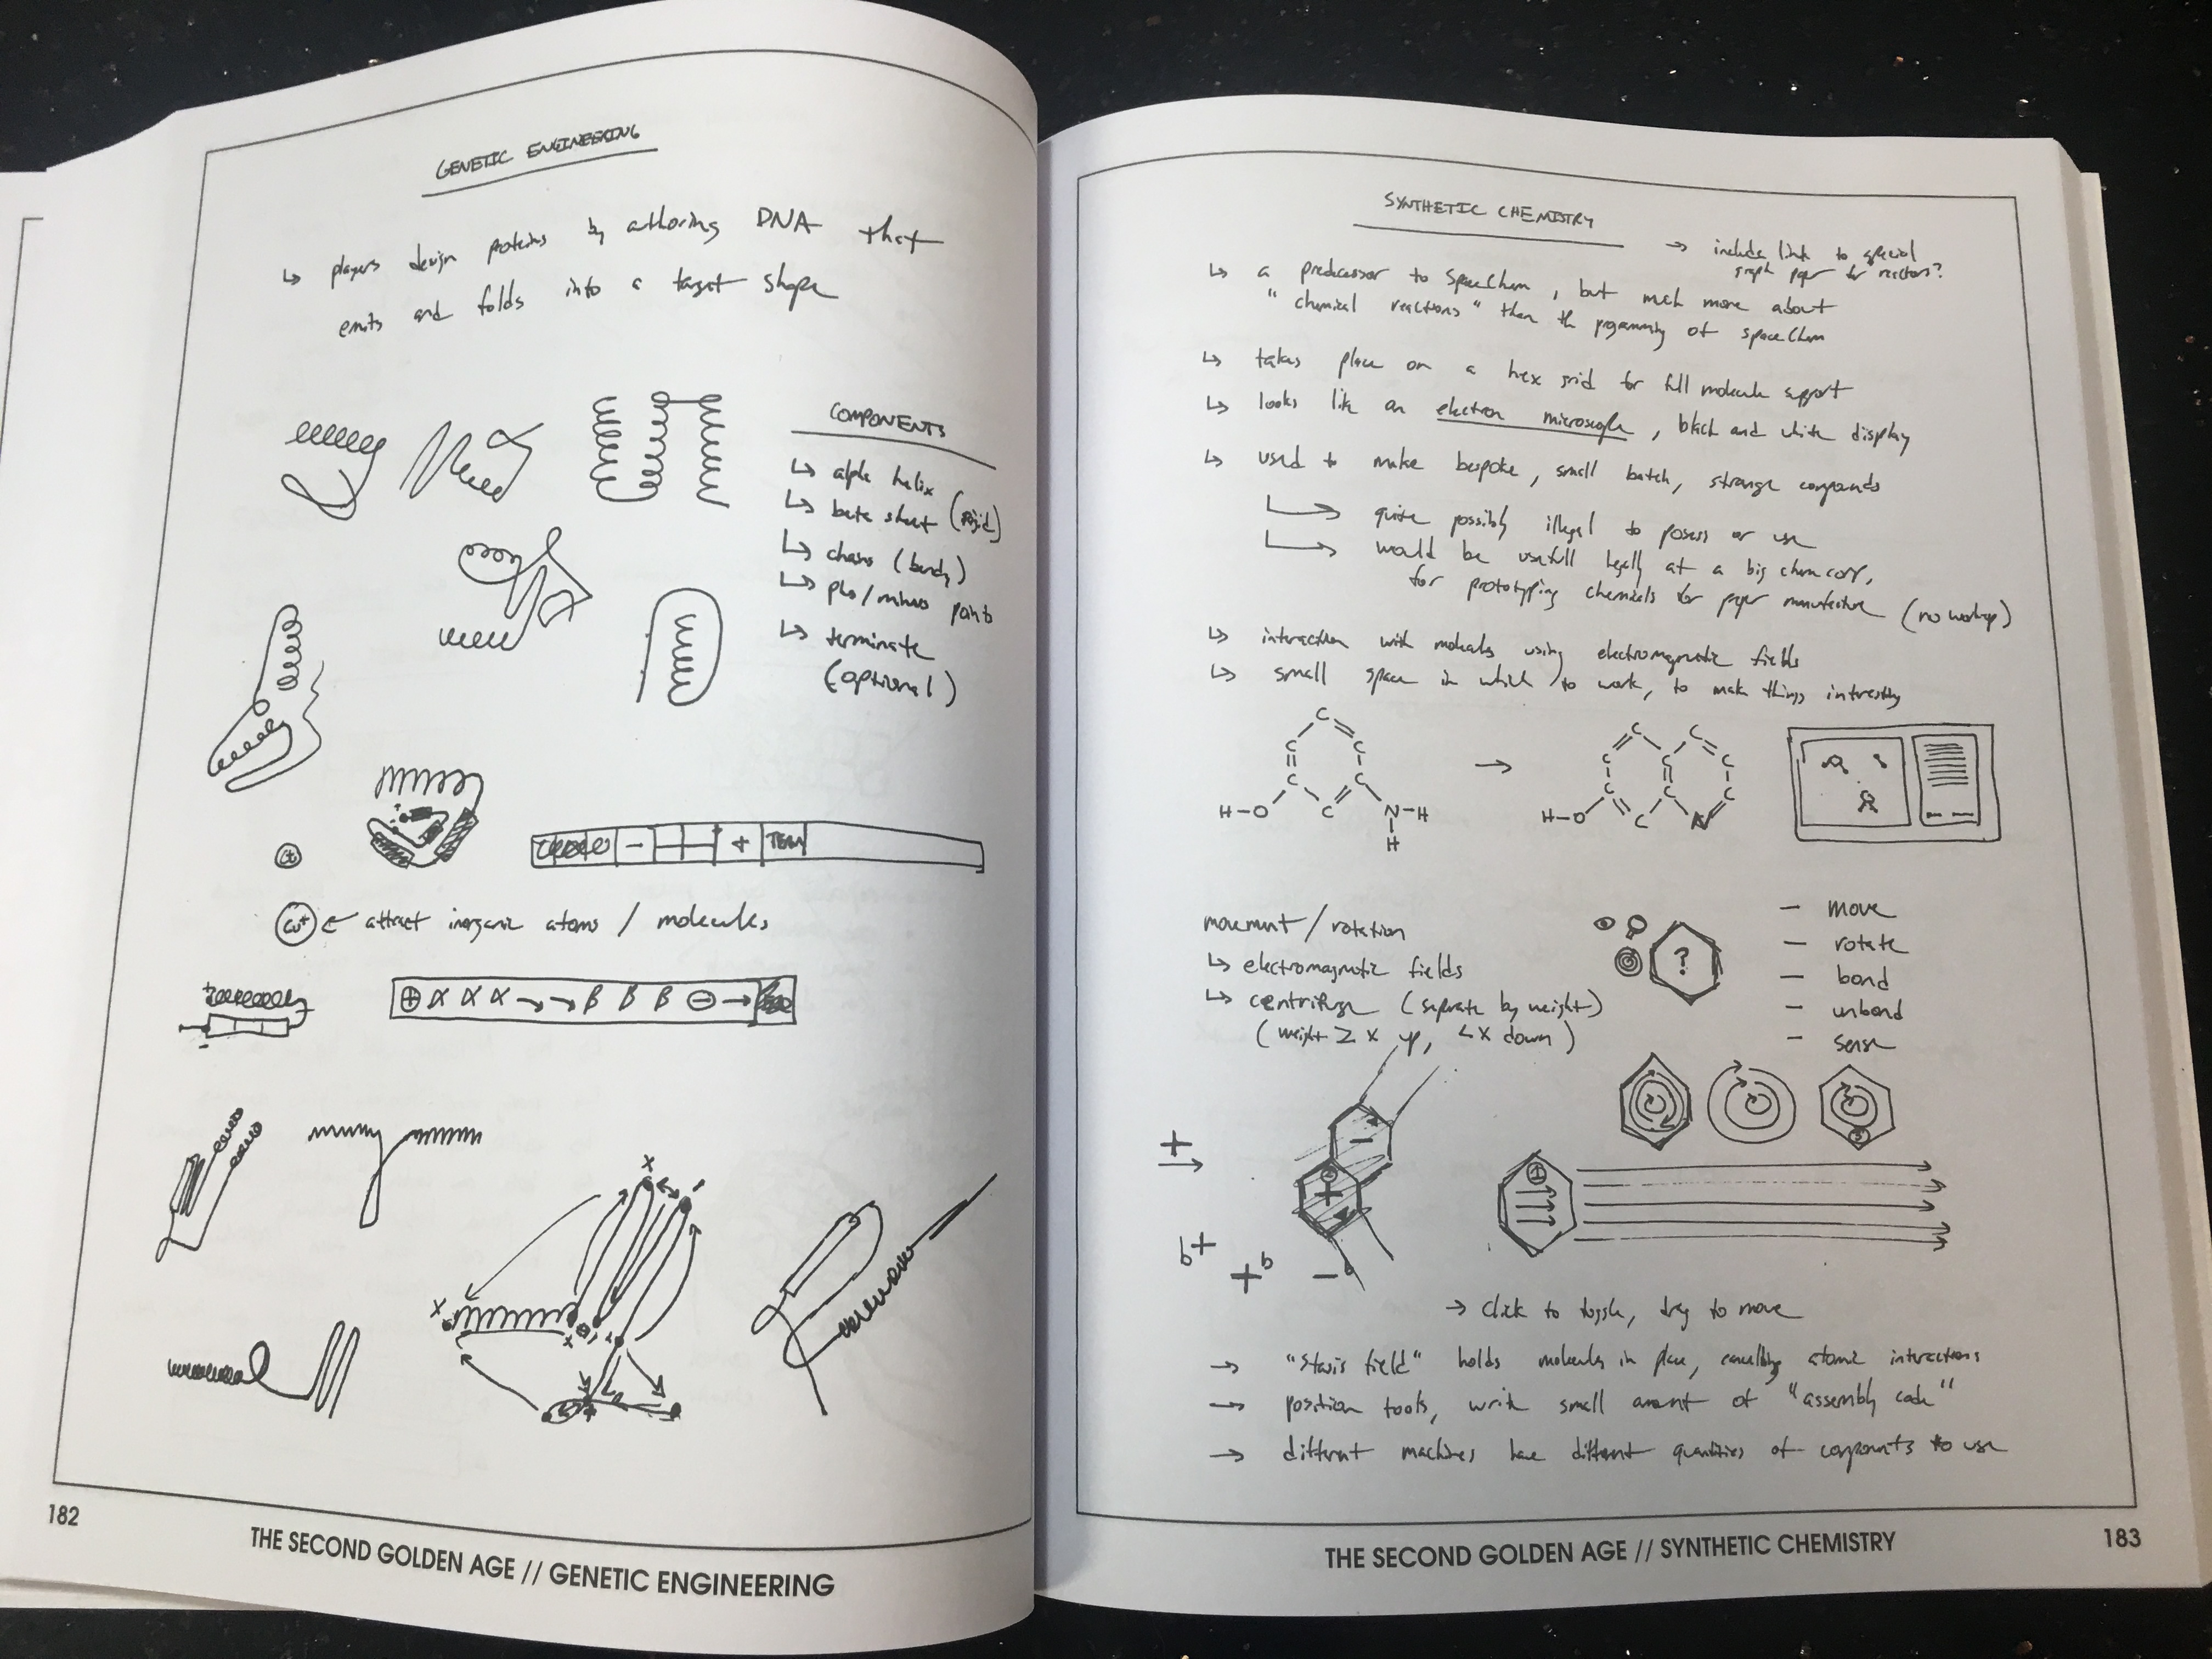 GENETIC ENGINEERING
↳ players design proteins by authoring DNA that
emits and folds into a target shape
COMPONENTS
↳ alpha helix
↳ beta sheet (rigid)
↳ chains (bendy)
↳ plus/minus points
↳ terminate
(optional)
- + TERM
Cu
Cu+ ← attract inorganic atoms / molecules
+
-
⊕ α α α → → β β β ⊖ →
x
x
x
182
THE SECOND GOLDEN AGE // GENETIC ENGINEERING
SYNTHETIC CHEMISTRY
→ include link to special
graph paper for reactors?
↳ a predecessor to SpaceChem, but much more about
"chemical reactions" than the programming of SpaceChem
↳ takes place on a hex grid for full molecule support
↳ looks like an electron microscope, black and white display
↳ used to make bespoke, small batch, strange compounds
↳ quite possibly illegal to posess or use
↳ would be usefull legally at a big chem corp,
for prototyping chemicals for paper manufacture (no workup)
↳ interaction with molecules using electromagnetic fields
↳ small space in which to work, to make things intresting
C C C C C C H-O N-H H
→
C C C C C C C C C H-O N
movement / rotation
↳ electromagnetic fields
↳ centrifuge (seperate by weight)
(weight ≥ x up, < x down)
?
- move
- rotate
- bond
- unbond
- sense
+
-
+
b+
+b
-
→ click to toggle, drag to move
→ "stasis field" holds molecules in place, cancelling atomic interactions
→ position tools, write small amount of "assembly code"
→ different machines have different quantities of components to use
THE SECOND GOLDEN AGE // SYNTHETIC CHEMISTRY
183